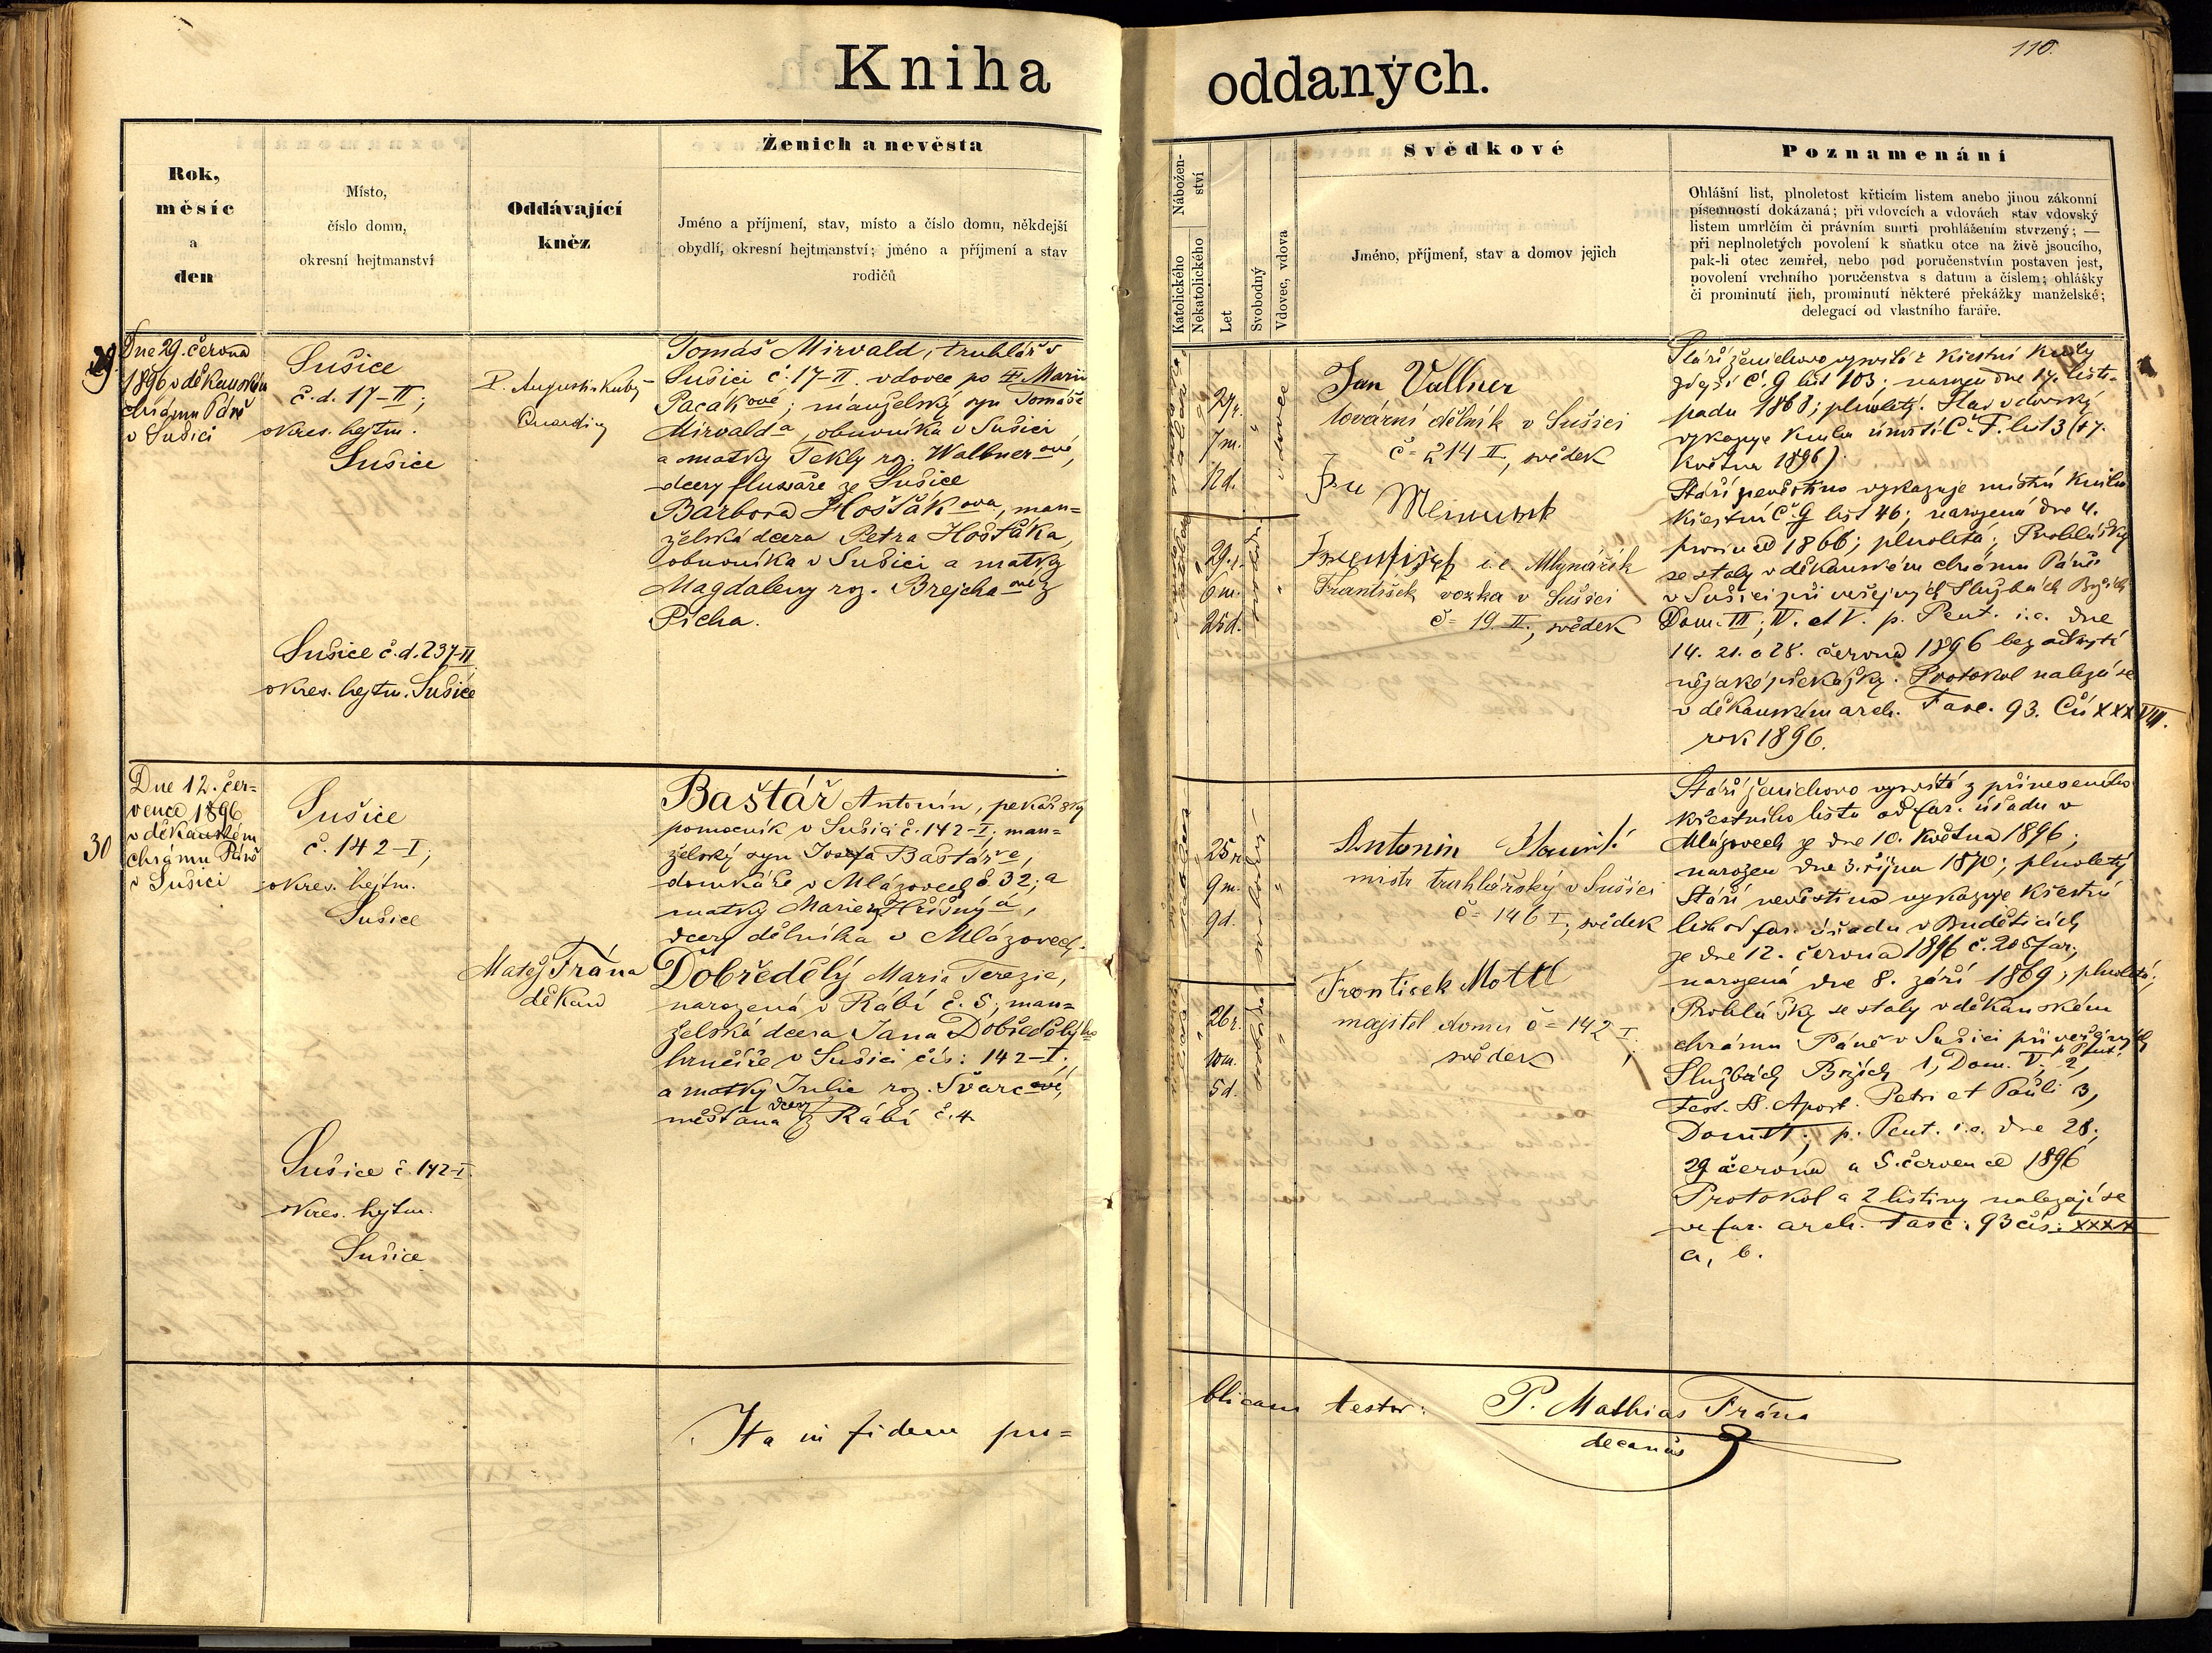 110.
Kniha oddaných.
Rok,
měsíc
a
den
Místo,
číslo domu,
okresní hejtmanství
Oddávající
kněz
Ženich a nevěsta
Jméno a příjmení, stav, místo a číslo domu, někdejší
obydlí, okresní hejtmanství; jméno a příjmení a stav
rodičů
Nábožen-
ství
Katolického
Nekatolického
Let
Svobodný
Vdovec, vdova
Svědkové
Jméno, příjmení, stav a domov jejich
Poznamenání
Ohlášní list, plnoletost křticím listem anebo jinou zákonní
písemností dokázaná; při vdovcích a vdovách stav vdovský
listem umrlčím či právním smrti prohlášením stvrzený; —
při neplnoletých povolení k sňatku otce na živě jsoucího,
pak-li otec zemřel, nebo pod poručenstvím postaven jest,
povolení vrchního poručenstva s datum a číslem; ohlášky
či prominutí jich, prominutí některé překážky manželské;
delegací od vlastního faráře.
29.
Dne 29. června
1896 v děkanském
chrámu Páně
v Sušici
Sušice
č.d. 17-II;
okres. hejtm.
Sušice
P. Augustin Kuby
Quardig
Tomáš Mirvald, truhlář v
Sušici č. 17-II. vdovec po † Marii
Pacákové; manželský syn Tomáše
Mirvalda, obuvníka v Sušici
a matky Tekly roz. Wallnerové,
dcery flusaře ze Sušice
Barbora Hošťáková, man=
želská dcera Petra Hošťáka,
obuvníka v Sušici a matky
Magdaleny roz. Brejchové z
Picha.
Sušice č.d. 237-II
okres. hejtm. Sušice
27 r.
7 m.
12 d.
vdovec
29 r.
6 m.
25 d.
Jan Vallner
tovární dělník v Sušici
č= 214 II, svědek
i.e Mlynářík
František vozka v Sušici
č= 19. II., svědek
Stáří ženichovo vysvitá z křestní knihy
zdejší Č. G list 103; narozen dne 17. listo-
padu 1868; plnoletý. Stav vdovský
vykazuje kniha úmrtí Č. F. list 13 († 7.
května 1896)
Stáří nevěstino vykazuje místní kniha
křestní Č. G list 46; narozená dne 4.
prosince 1866; plnoletá; Prohlášky
se staly v děkanském chrámu Páně
v Sušici při veřejných Službách Božích
Dom. III; IV. et V. p. Pent. i.e. dne
14. 21. a 28. června 1896 bez odkrytí
nějaké překážky. Protokol nalezá se
v děkanském arch. Fasc. 93. Čís XXXVII.
rok 1896.
30
Dne 12. čer=
vence 1896
v děkanském
chrámu Páně
v Sušici
Sušice
č. 142-I;
okres. hejtm.
Sušice
Matěj Frána
děkan
Baštář Antonín, pekařský
pomocník v Sušici č. 142-I; man=
želský syn Josefa Baštáře,
domkáře v Mlázovech č. 32; a
matky Marie Hříšný,
dcery dělníka v Mlázovech.
Dobředělý Maria Terezie,
narozená v Rábí č. 5; man=
želská dcera Jana Dobředělýho
hrnčíře v Sušici čís: 142-I;
a matky Julie roz. Švarcové,
dcery
měšťana z Rábí č. 4
Sušice č. 142-I.
okres. hejtm.
Sušice
25 r.
9 m.
9 d.
svobodný
26 r.
10 m.
5 d.
svobodná
Antonin
mistr truhlářský v Sušici
č= 146 I, svědek
Frontisek Mottl
majitel domu č= 142 I.
svědek
Stáří ženichovo vysvitá z přineseného
křestního listu od far. úřadu v
Mlázovech ze dne 10. května 1896;
narozen dne 3. října 1870; plnoletý
Stáří nevěstino vykazuje křestní
list od far. úřadu v Budětících
ze dne 12. června 1896 č. 205 far;
narozená dne 8. září 1869; plnoletá;
Prohlášky se staly v děkanském
chrámu Páně v Sušici při veřejných
Službách Božích 1, Dom. V. p. Pent. 2,
Fest. SS. Apost. Petri et Pauli 3,
Dom. VI. p. Pent. i.e. dne 28;
29 června a 5. července 1896
Protokol a 2 listiny nalezají se
ve far. arch. Fasc. 93 čís: XXXX
a, b.
Ita in fidem pu=
blicam testor: P. Mathias Frána
decanus